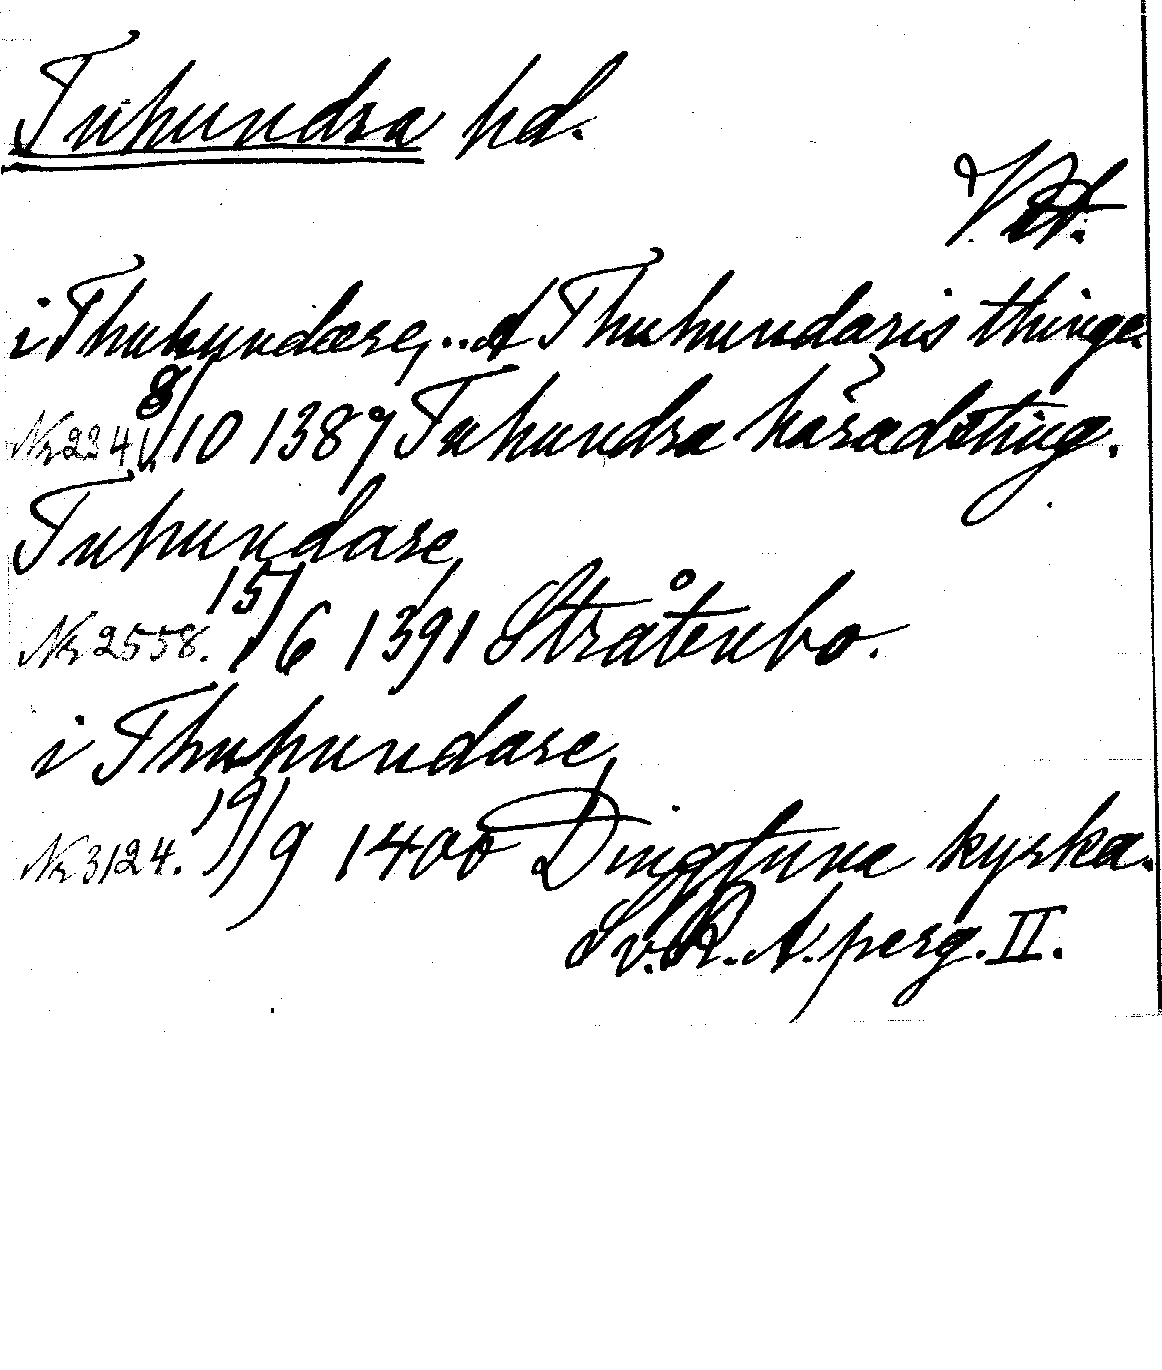 Tuhundra hd.
Vstm.
i Thuhundære, .. A Thuhundaris thinge
Nr 2241. 8/10 1387 Tuhundra häradsting.
Tuhundare,
Nr 2558. 15/6 1391 Stråtenbo.
i Thuhundare,
Nr 3124. 19/9 1400 Dingtuna kyrka.
Sv. R. A. perg. II.